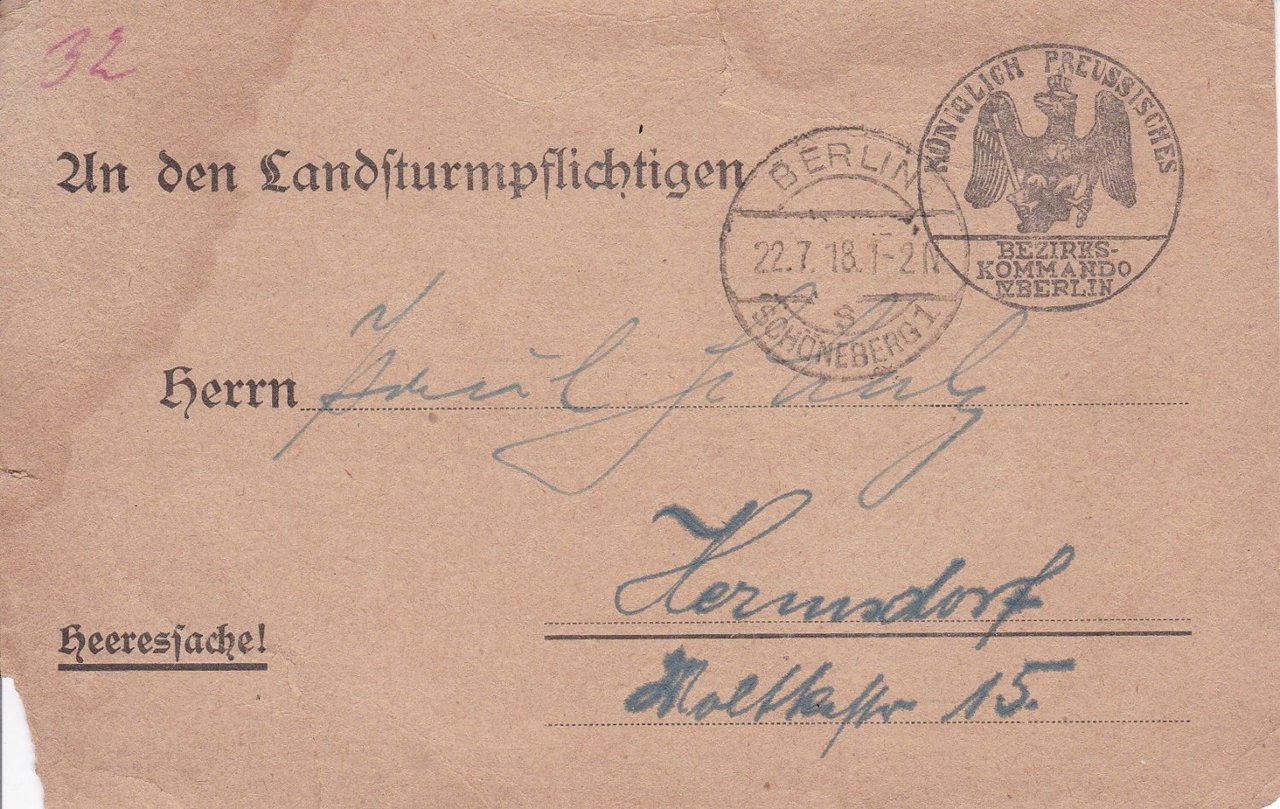 32
An den Landsturmpflichtigen
BERLIN
22.7.18.1-2N
s
SCHÖNEBERG 1
KÖNIGLICH PREUSSISCHES
BEZIRKS-
KOMMANDO
BERLIN
Herrn
Hermsdorf
Heeressache!
Moltkestr 15.